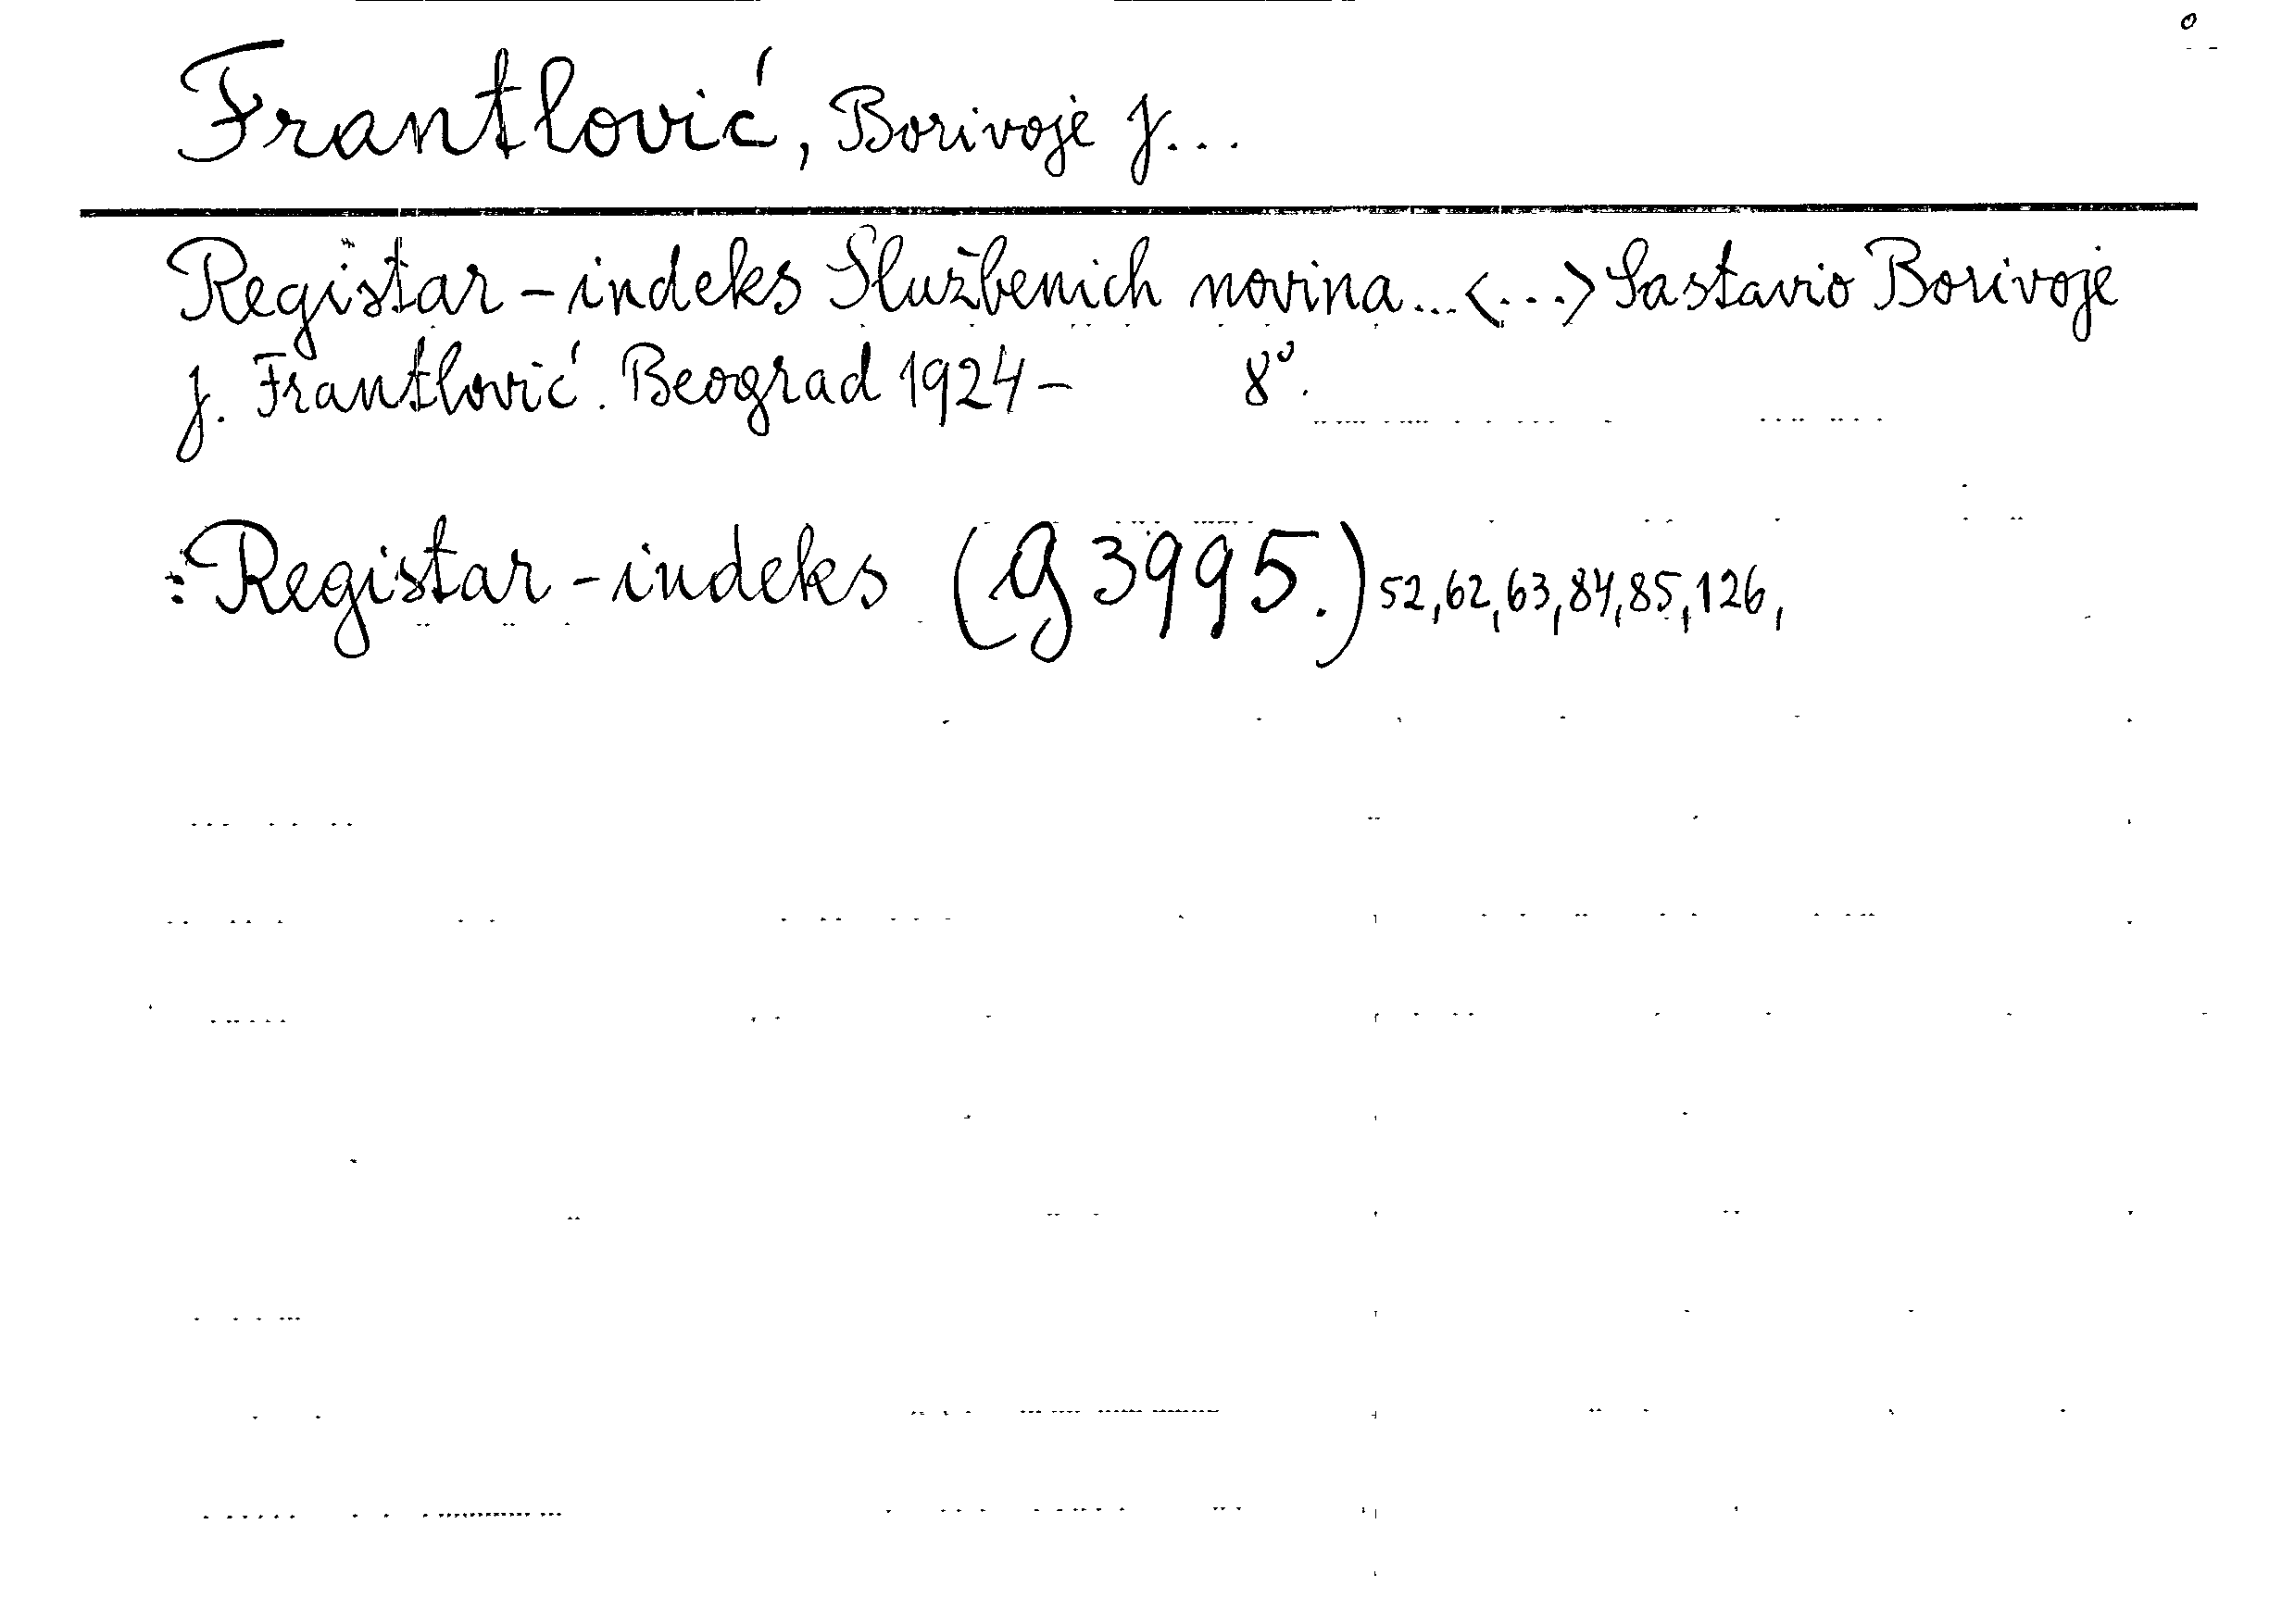 Frantlović, Borivoje J...
Registar-indeks Službenich novina...<...> Sastavio Borivoje
J. Frantlović. Beograd 1924- 8°.
:Registar-indeks (G 3995.) 52,62,63,84,85,126,